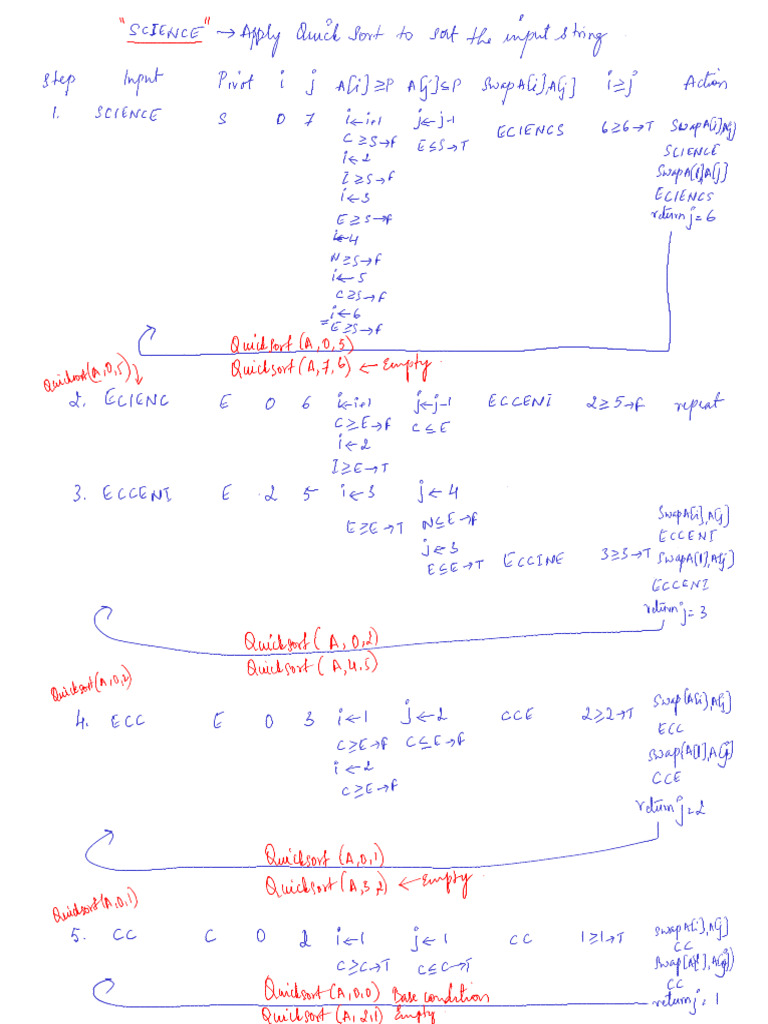 "SCIENCE" → Apply Quick Sort to sort the input string.
Step Input Pivot i j A[i]≥P A[j]≤P Swap A[i],A[j] i≥j Action
1. SCIENCE S 0 7 i←i+1 j←j-1 ECIENCS 6≥6→T Swap A[i],A[j]
C≥S→F E≤S→T SCIENCE
i←2 Swap A[l],A[j]
I≥S→F ECIENCS
i←3 return j=6
E≥S→F
i←4
N≥S→F
i←5
C≥S→F
i←6
E≥S→F
Quicksort(A,0,5)
Quicksort(A,7,6) ← Empty
Quicksort(A,0,5)
2. ECIENC E 0 6 i←i+1 j←j-1 ECCENI 2≥5→F repeat
C≥E→F C≤E
i←2
I≥E→T
3. ECCENI E 2 5 i←3 j←4
E≥E→T N≤E→F Swap A[i],A[j]
ECCENI
j←3
E≤E→T ECCINE 3≥3→T Swap A[l],A[j]
ECCENI
return j=3
Quicksort(A,0,2)
Quicksort(A,4,5)
Quicksort(A,0,2)
4. ECC E 0 3 i←1 j←2 CCE 2≥2→T Swap(A[i],A[j]
C≥E→F C≤E→F ECC
i←2 Swap(A[l],A[j])
C≥E→F CCE
return j=2
Quicksort(A,0,1)
Quicksort(A,3,2) ← Empty
Quicksort(A,0,1)
5. CC C 0 2 i←1 j←1 CC 1≥1→T Swap A[i],A[j]
C≥C→T C≤C→T CC
Swap(A[l],A[j])
CC
Quicksort(A,0,0) Base condition return j=1
Quicksort(A,2,1) Empty